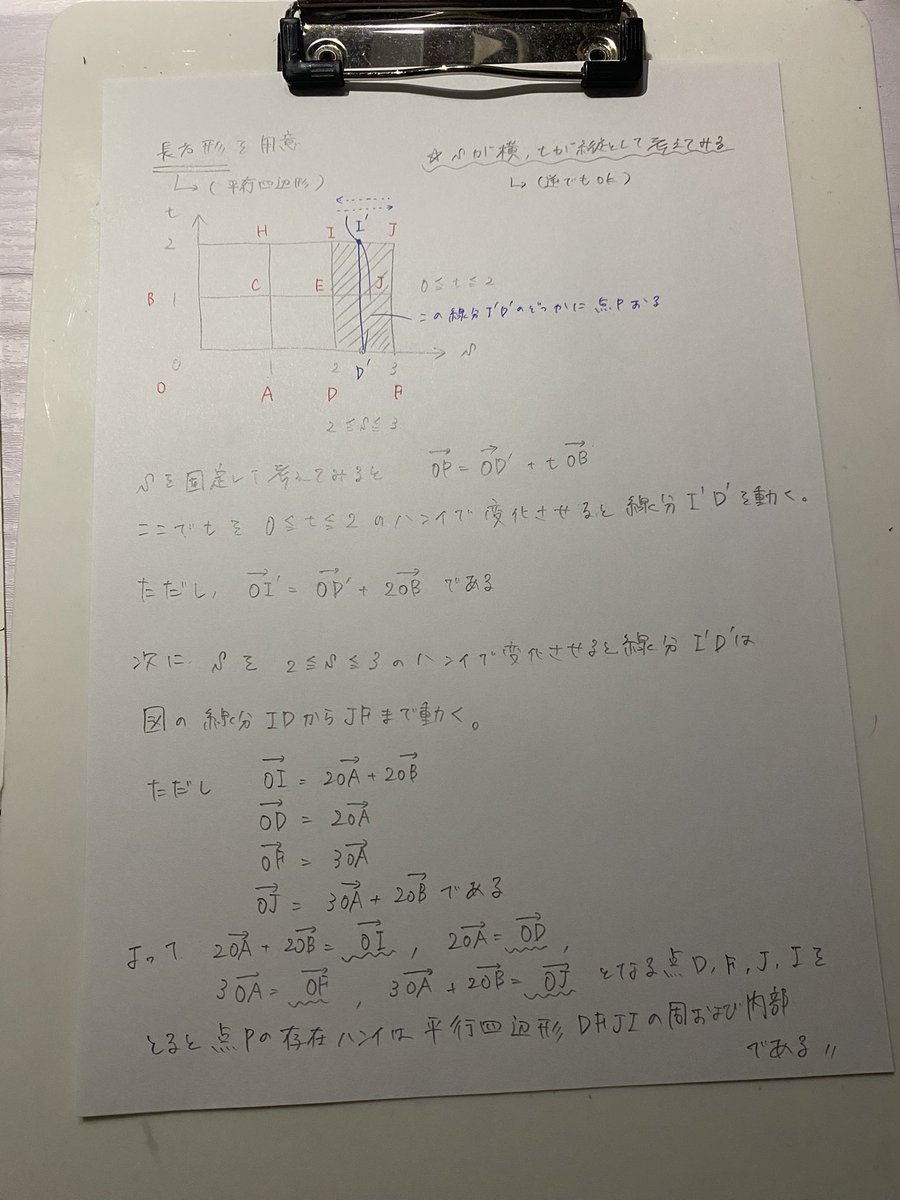 長方形を用意
↳(平行四辺形)
☆ sが横,tが縦として考えてみる
↳(逆でもOK)
t
H I I' J
2
B 1 C E J 0≦t≦2
この線分I'D'のどっかに点Pおる
0 1 2 D' 3 s
O A D F
2≦s≦3
sを固定して考えてみると OP→=OD'→+tOB→
ここでtを0≦t≦2のハンイで変化させると線分I'D'を動く。
ただし, OI'→=OD'→+2OB→である
次に sを 2≦s≦3のハンイで変化させると線分I'D'は
図の線分IDからJFまで動く。
ただし OI→=2OA→+2OB→
OD→=2OA→
OF→=3OA→
OJ→=3OA→+2OB→である
よって 2OA→+2OB→=OI→, 2OA→=OD→,
3OA→=OF→, 3OA→+2OB→=OJ→となる点D,F,J,Iを
とると点Pの存在ハンイは平行四辺形DFJIの周および内部
である〃